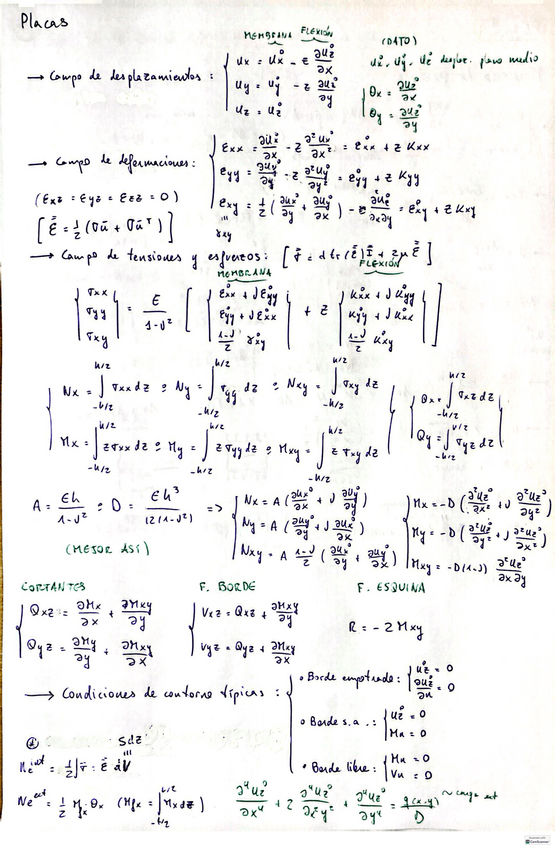 Placas
MEMBRANA FLEXIÓN
(DATO)
→ Campo de desplazamientos : { ux = ux° - z ∂uz°/∂x
uy = uy° - z ∂uz°/∂y
uz = uz°
ux°, uy°, uz° desplaz. plano medio
{ θx = ∂uz°/∂x
θy = ∂uz°/∂y
→ Campo de deformaciones: { Exx = ∂ux°/∂x - z ∂²ux°/∂x² = E°xx + z Kxx
Eyy = ∂uy°/∂y - z ∂²uy°/∂y² = E°yy + z Kyy
Exy = 1/2 (∂ux°/∂y + ∂uy°/∂x) - z ∂²uz°/∂x∂y = E°xy + z Kxy
(Exz = Eyz = Ezz = 0)
[ E = 1/2 (∇u + ∇u^T) ]
γxy
→ Campo de tensiones y esfuerzos: [ σ = λ tr(E) I + 2μ E ]
MEMBRANA FLEXIÓN
{ σxx σyy σxy } = E/1-ν² [ { E°xx + ν E°yy
E°yy + ν E°xx
1-ν/2 γ°xy } + z { K°xx + ν K°yy
K°yy + ν K°xx
1-ν/2 K°xy } ]
{ Nx = ∫ -h/2 h/2 σxx dz ; Ny = ∫ -h/2 h/2 σyy dz ; Nxy = ∫ -h/2 h/2 σxy dz
Mx = ∫ -h/2 h/2 z σxx dz ; My = ∫ -h/2 h/2 z σyy dz ; Mxy = ∫ -h/2 h/2 z σxy dz }
{ Qx = ∫ -h/2 h/2 σxz dz
Qy = ∫ -h/2 h/2 σyz dz }
A = Eh/1-ν² ; D = Eh³/12(1-ν²) => { Nx = A (∂ux°/∂x + ν ∂uy°/∂y)
Ny = A (∂uy°/∂y + ν ∂ux°/∂x)
Nxy = A 1-ν/2 (∂ux°/∂y + ∂uy°/∂x)
{ Mx = -D (∂²uz°/∂x² + ν ∂²uz°/∂y²)
My = -D (∂²uz°/∂y² + ν ∂²uz°/∂x²)
Mxy = -D(1-ν) ∂²uz°/∂x∂y
(MEJOR ASÍ)
CORTANTES F. BORDE F. ESQUINA
{ Qxz = ∂Mx/∂x + ∂Mxy/∂y
Qyz = ∂My/∂y + ∂Mxy/∂x
{ Vxz = Qxz + ∂Mxy/∂y
Vyz = Qyz + ∂Mxy/∂x
R = -2 Mxy
→ Condiciones de contorno típicas : { • Borde empotrado: { uz° = 0
∂uz°/∂n = 0
• Borde s.a. : { uz° = 0
Mn = 0
• Borde libre: { Mn = 0
Vn = 0
Sdz
= 1/2 ∫ σ : E dV
= 1/2 · θx
∂⁴uz°/∂x⁴ + 2 ∂⁴uz°/∂x²y² + ∂⁴uz°/∂y⁴ = q(x,y)/D ~ carga ext
CamScanner